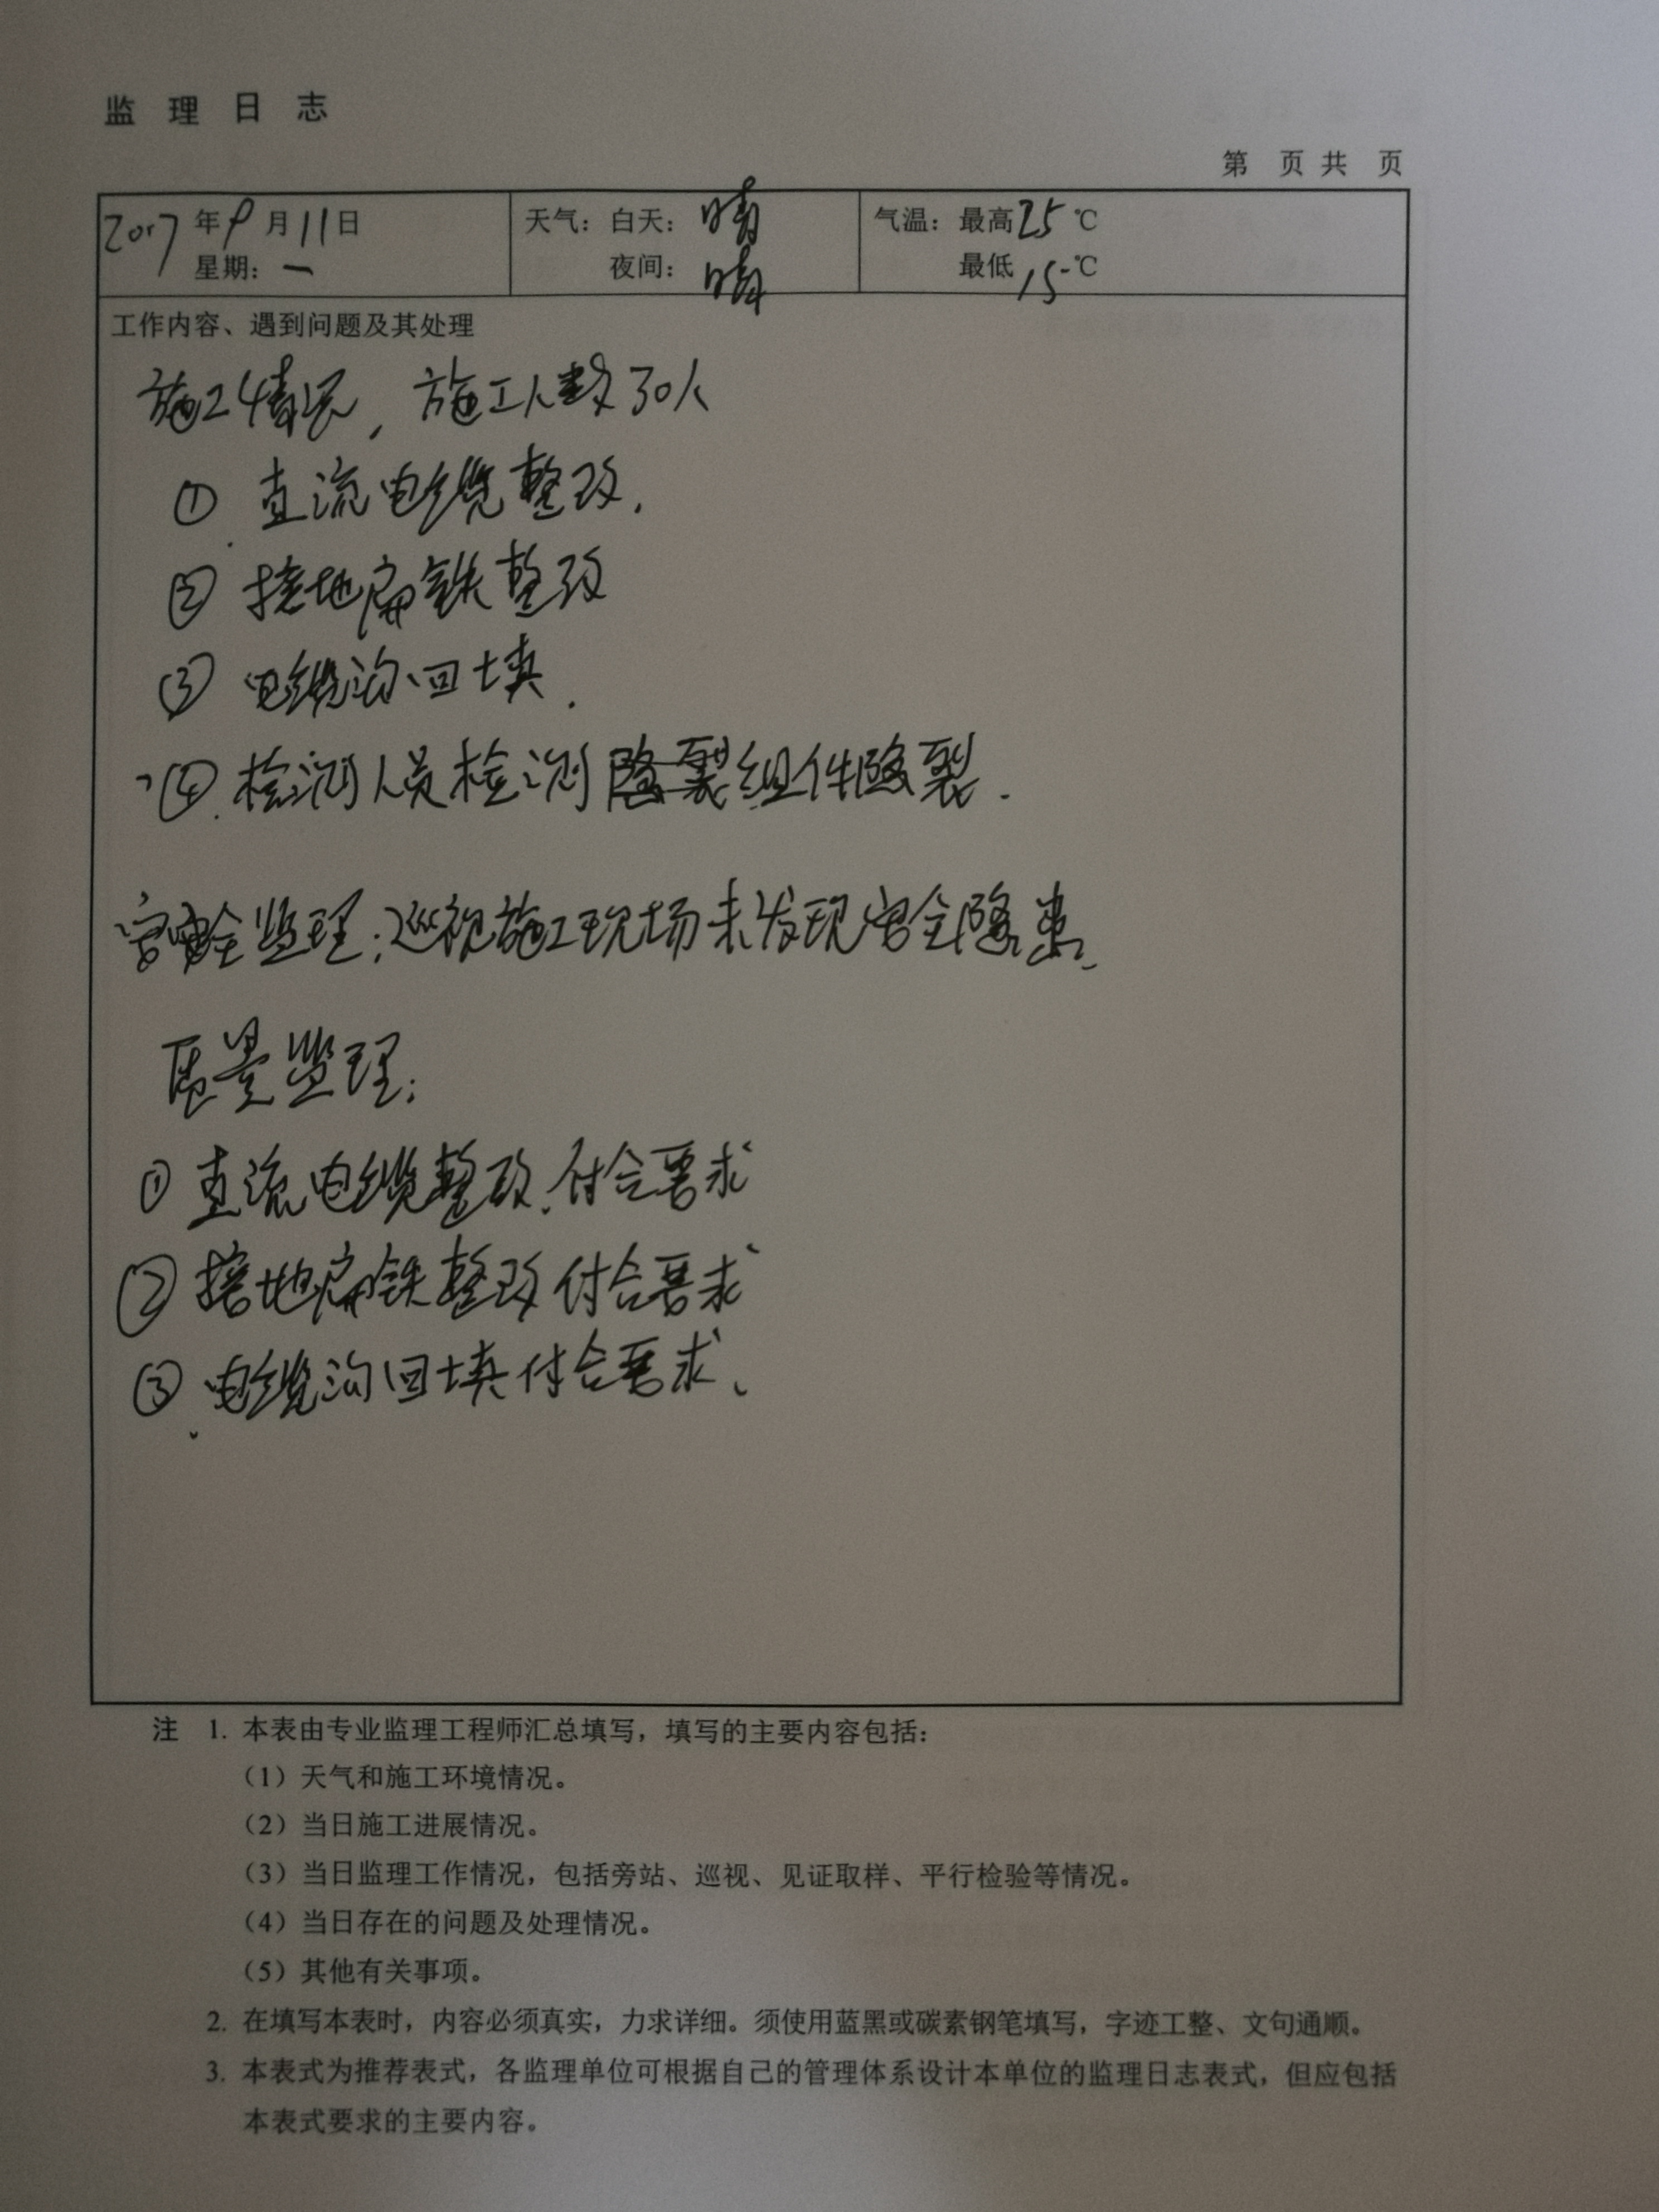 监理日志
第 页 共 页
2017年9月11日 天气：白天：晴 气温：最高25℃
星期：一 夜间：晴 最低15℃
工作内容、遇到问题及其处理
施工情况，施工人数30人
① 直流电缆整改.
② 接地扁铁整改
③ 电缆沟回填.
④ 检测人员检测组件隐裂.
安全监理：巡视施工现场未发现安全隐患、
质量监理：
① 直流电缆整改.付合要求
② 接地扁铁整改付合要求
③ 电缆沟回填付合要求、
注 1. 本表由专业监理工程师汇总填写，填写的主要内容包括：
（1）天气和施工环境情况。
（2）当日施工进展情况。
（3）当日监理工作情况，包括旁站、巡视、见证取样、平行检验等情况。
（4）当日存在的问题及处理情况。
（5）其他有关事项。
2. 在填写本表时，内容必须真实，力求详细。须使用蓝黑或碳素钢笔填写，字迹工整、文句通顺。
3. 本表式为推荐表式，各监理单位可根据自己的管理体系设计本单位的监理日志表式，但应包括
本表式要求的主要内容。